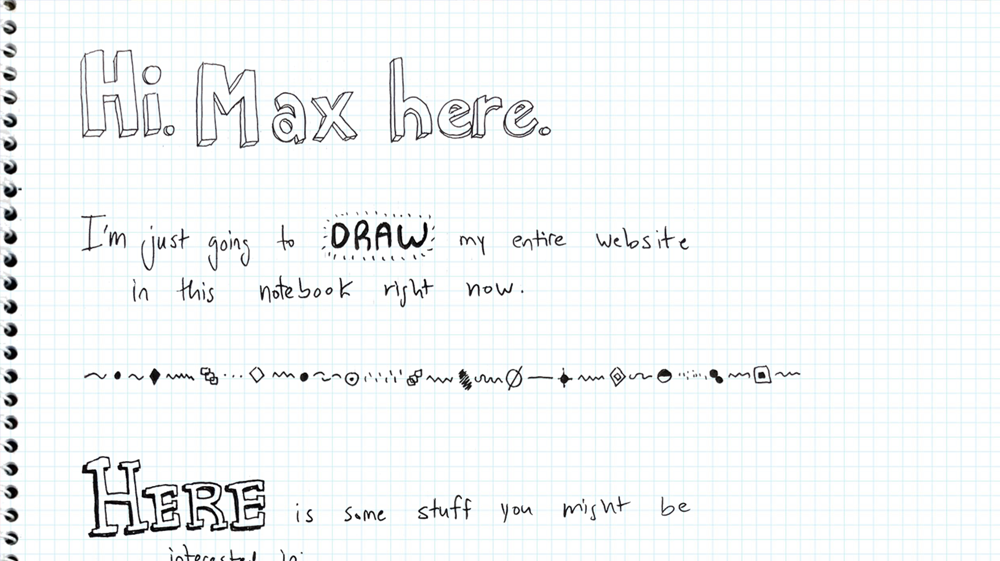 Hi. Max here.
I'm just going to DRAW my entire website
in this notebook right now.
HERE is some stuff you might be
interested in: